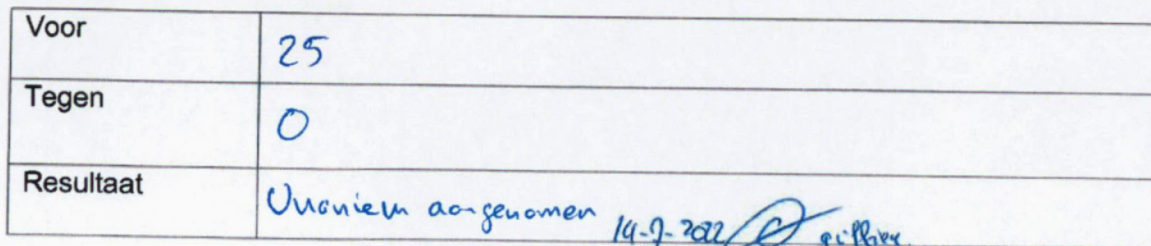 Voor 25
Tegen 0
Resultaat Unaniem aangenomen 14-7-2022 griffier